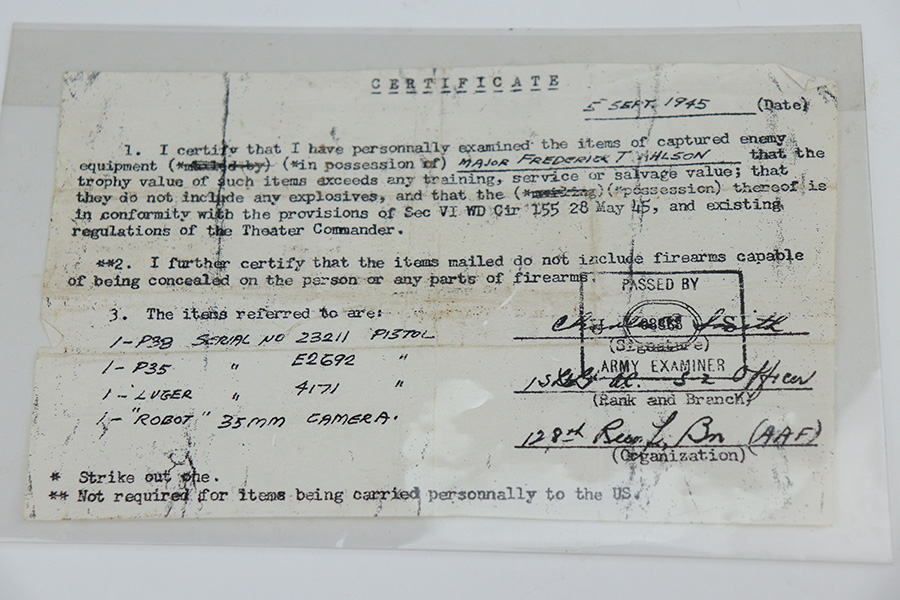 CERTIFICATE
5 SEPT. 1945 (Date)
1. I certify that I have personnally examined the items of captured enemy
equipment (*mailed by) (*in possession of) MAJOR FREDERICK T that the
trophy value of such items exceeds any training, service or salvage value; that
they do not include any explosives, and that the (*mailing)(*possession) thereof is
in conformity with the provisions of Sec VI WD Cir 155 28 May 45, and existing
regulations of the Theater Commander.
**2. I further certify that the items mailed do not include firearms capable
of being concealed on the person or any parts of firearms.
PASSED BY
3. The items referred to are:
1-P38 SERIAL NO 23211 PISTOL
Smith
(Signature)
ARMY EXAMINER
1-P35 " E2692 "
1st Lt S-2 Officer
(Rank and Branch)
1-LUGER " 4171 "
1-"ROBOT" 35MM CAMERA.
128th Bn (AAF)
(Organization)
* Strike out one.
** Not required for items being carried personnally to the US.